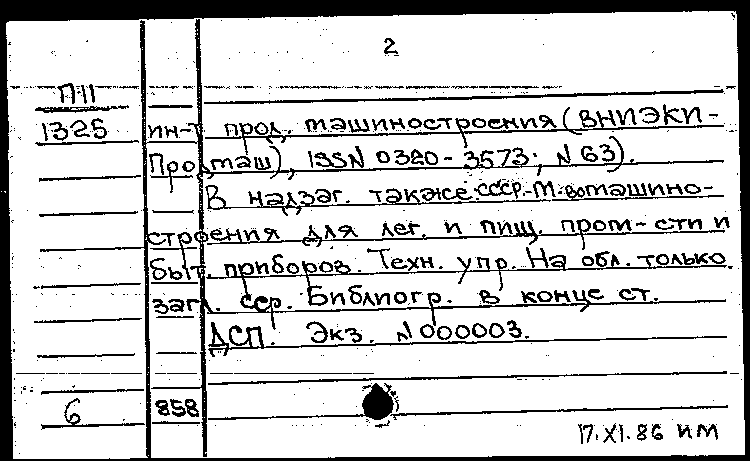 2
П11
1325 ин-т прод. машиностроения (ВНИЭКИ-
Продмаш), ISSN 0320-3573; N 63).
В надзаг. также: СССР. М-во машино-
строения для лег. и пищ. пром-сти и
быт. приборов. Техн. упр. На обл. только
загл. сер. Библиогр. в конце ст.
ДСП. Экз. N 000003.
6 858
17.XI.86 ИМ